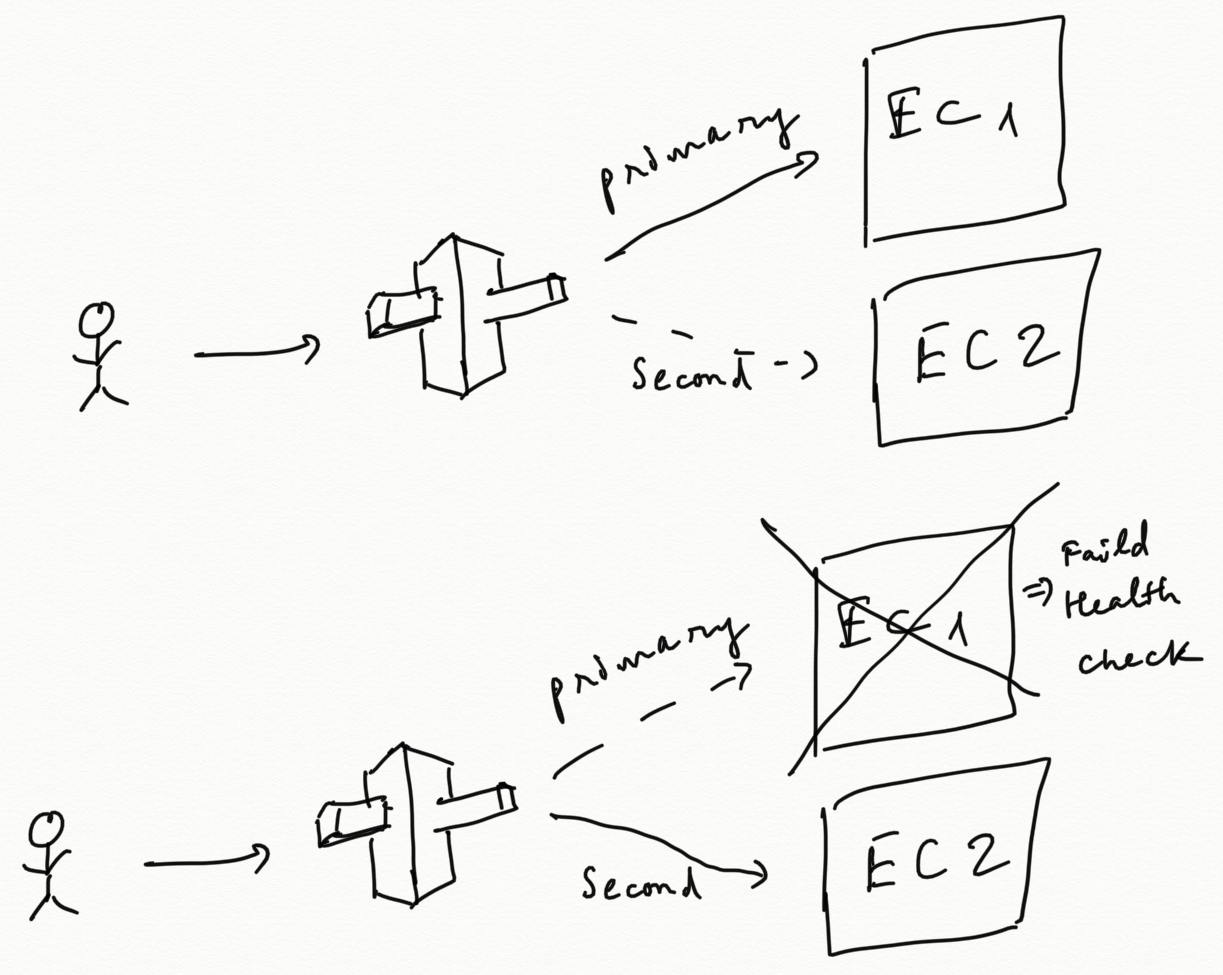 primary
EC1
Second
EC2
primary
EC1
Faild
Health
check
Second
EC2